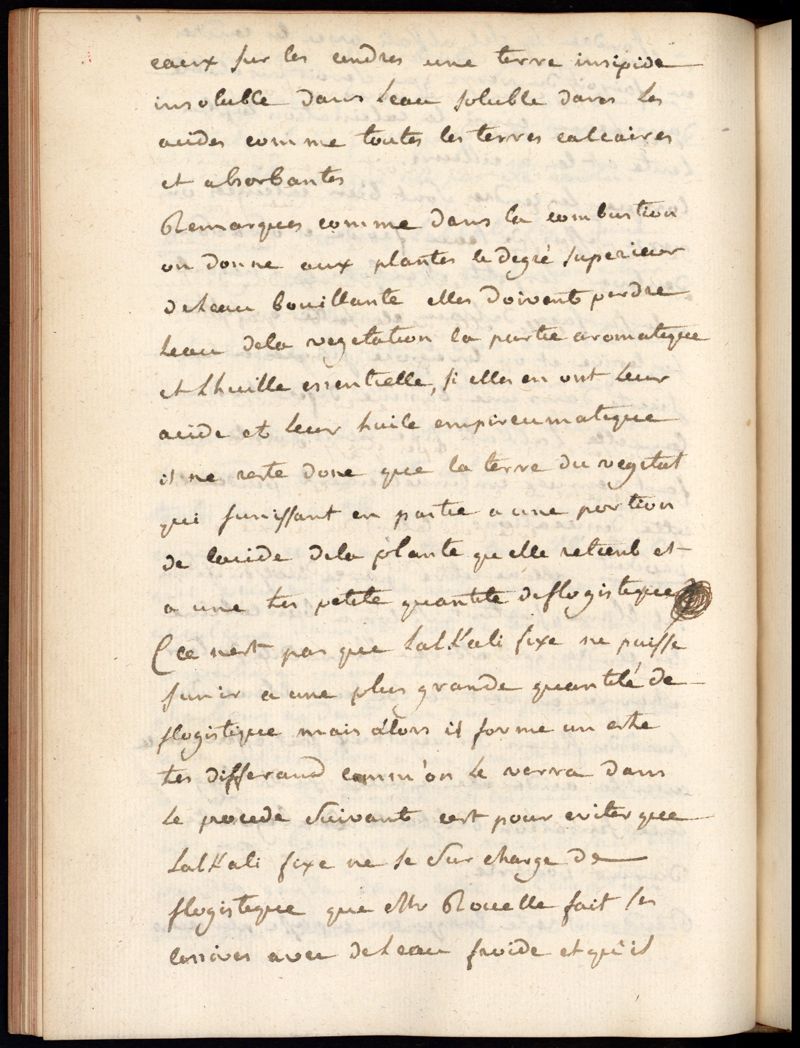 eaux sur les cendres une terre insipide
insoluble dans Leau soluble dans les
acides comme toutes les terres calcaires
et absorbantes
Remarques comme dans la combustion
on donne aux plantes le degré superieur
de Leau bouillante elles doivent perdre
Leau dela vegetation la partie aromatique
et Lhuille essentielle, si elles en ont Leur
acide et Leur huile empireumatique
il ne reste donc que la terre du vegetal
qui sunissant en partie a une portion
de lacide dela plante quelle retient et
a une tes petite quantité deflogistique
(ce nest pas que Lalkali fixe ne puisse
sunir a une plus grande quantité de
flogistique mais alors il forme un
tes differand comm'on Le verra dans
Le procede Suivant cest pour eviter que
Lalkali fixe ne se Sur charge de
flogistique que Mr Rouelle fait ses
lessives avec deLeau froide et qu'il